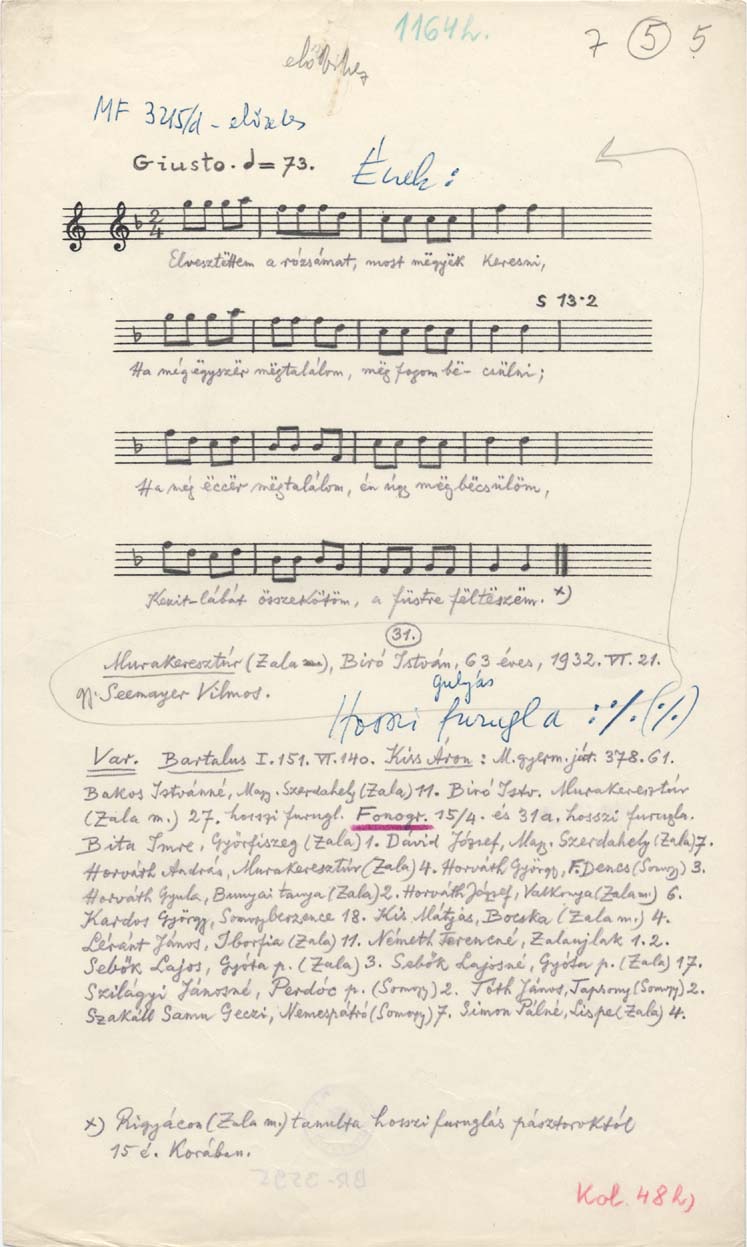 1164h.
7 5 5
előbihez
MF 3215/d - előzetes
Giusto. d = 73.
Ének:
2/4
Elvesztëttem a rózsámat, most mëgyëk keresni,
S 13-2
Ha még ëgyszër mëgtalálom, mëg fogom bë- csülni;
Ha még ëccër mëgtalálom, én úgy mëgbëcsülöm,
Kezit-lábát összekötöm, a füstre fëltëszëm. x)
31.
Murakeresztúr (Zala m.), Biró István, 63 éves, 1932. VI. 21.
gulyás
gy. Seemayer Vilmos.
Hosszi furugla :%.(%)
Var. Bartalus I. 151. VI. 140. Kiss Áron: M. gyerm. ját. 378. 61.
Bakos Istvánné, Magy. Szerdahely (Zala) 11. Biró Istv. Murakeresztúr
(Zala m.) 27. hosszi furugl. Fonogr. 15/4. és 31a. hosszi furugla.
Bita Imre, Györfiszeg (Zala) 1. Dávid József, Magy. Szerdahely (Zala) 7.
Horváth András, Murakeresztúr (Zala) 4. Horváth György, F. Dencs (Somogy) 3.
Horváth Gyula, Bunyai tanya (Zala) 2. Horváth József, Valkonya (Zala m.) 6.
Kardos György, Somogyberzence 18. Kis Mátyás, Bocska (Zala m.) 4.
Léránt János, Iborfia (Zala) 11. Németh Ferencné, Zalaujlak 1. 2.
Sebők Lajos, Gyóta p. (Zala) 3. Sebők Lajosné, Gyóta p. (Zala) 17.
Szilágyi Jánosné, Perdóc p. (Somogy) 2. Tóth János, Tapsony (Somogy) 2.
Szakáll Samu Geczi, Nemespátró (Somogy) 7. Simon Pálné, Lispe (Zala) 4.
x) Rigyácon (Zala m.) tanulta hosszi furuglás pásztoroktól
15 é. korában.
Kol. 48h)